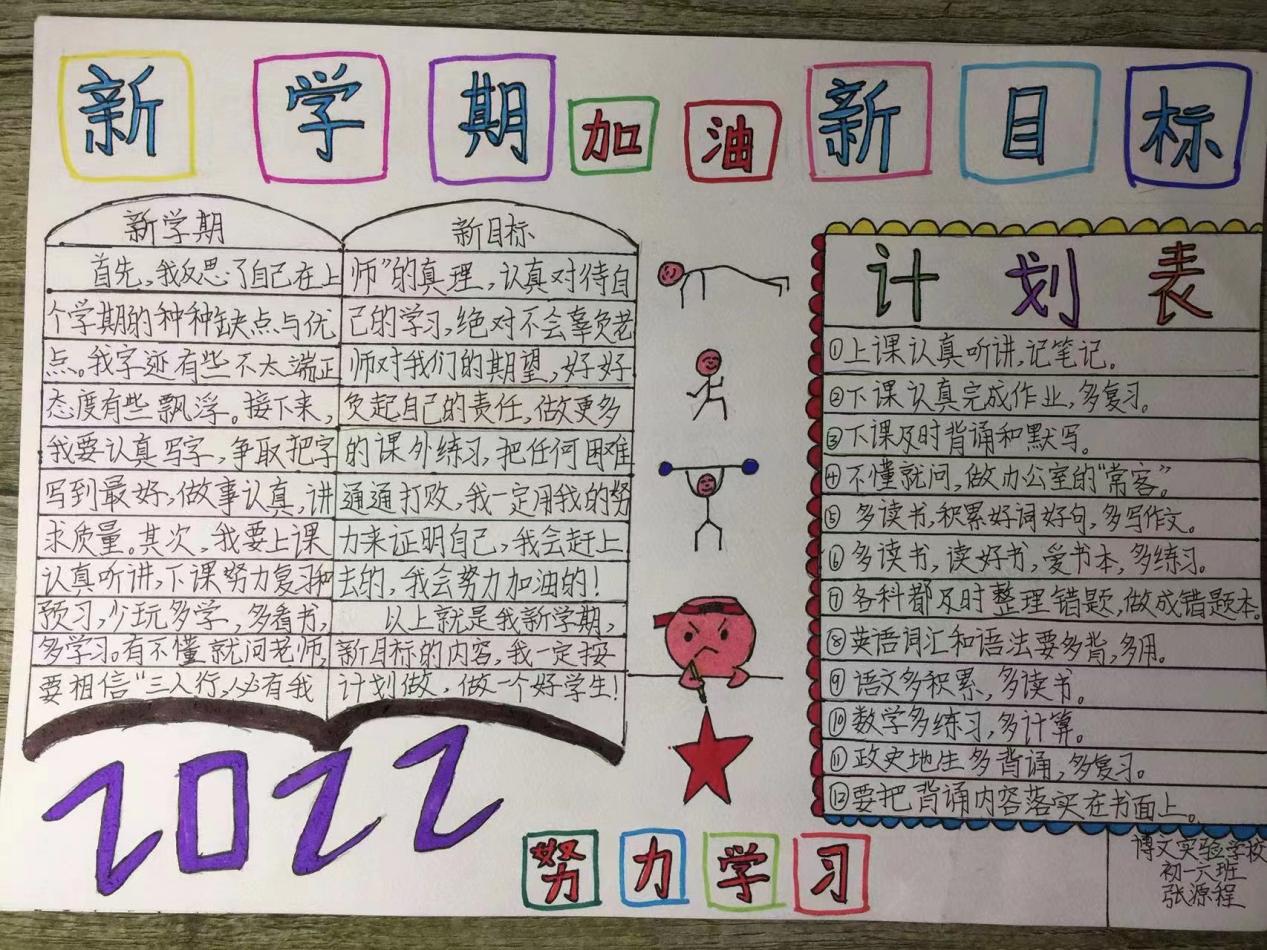 新学期加油新目标
新学期
首先,我反思了自己在上
个学期的种种缺点与优
点。我字迹有些不太端正
态度有些飘浮。接下来,
我要认真写字,争取把字
写到最好,做事认真,讲
求质量。其次,我要上课
认真听讲,下课努力复习和
预习,少玩多学,多看书,
多学习。有不懂就问老师,
要相信“三人行,必有我
新目标
师”的真理,认真对待自
己的学习,绝对不会辜负老
师对我们的期望,好好
负起自己的责任,做更多
的课外练习,把任何困难
通通打败,我一定用我的努
力来证明自己,我会赶上
去的,我会努力加油的!
以上就是我新学期,
新目标的内容,我一定按
计划做,做一个好学生!
计划表
①上课认真听讲,记笔记。
②下课认真完成作业,多复习。
③下课及时背诵和默写。
④不懂就问,做办公室的“常客”
⑤多读书,积累好词好句,多写作文。
⑥多读书,读好书,爱书本,多练习。
⑦各科都及时整理错题,做成错题本。
⑧英语词汇和语法要多背,多用。
⑨语文多积累,多读书。
⑩数学多练习,多计算。
⑪政史地生多背诵,多复习。
⑫要把背诵内容落实在书面上。
2022
努力学习
博文实验学校
初一六班
张源程